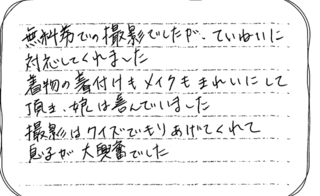 無料券での撮影でしたが、ていねいに
対応してくれました
着物の着付けもメイクもきれいにして
頂き、娘は喜んでいました
撮影は、クイズでもりあげてくれて
息子が大興奮でした